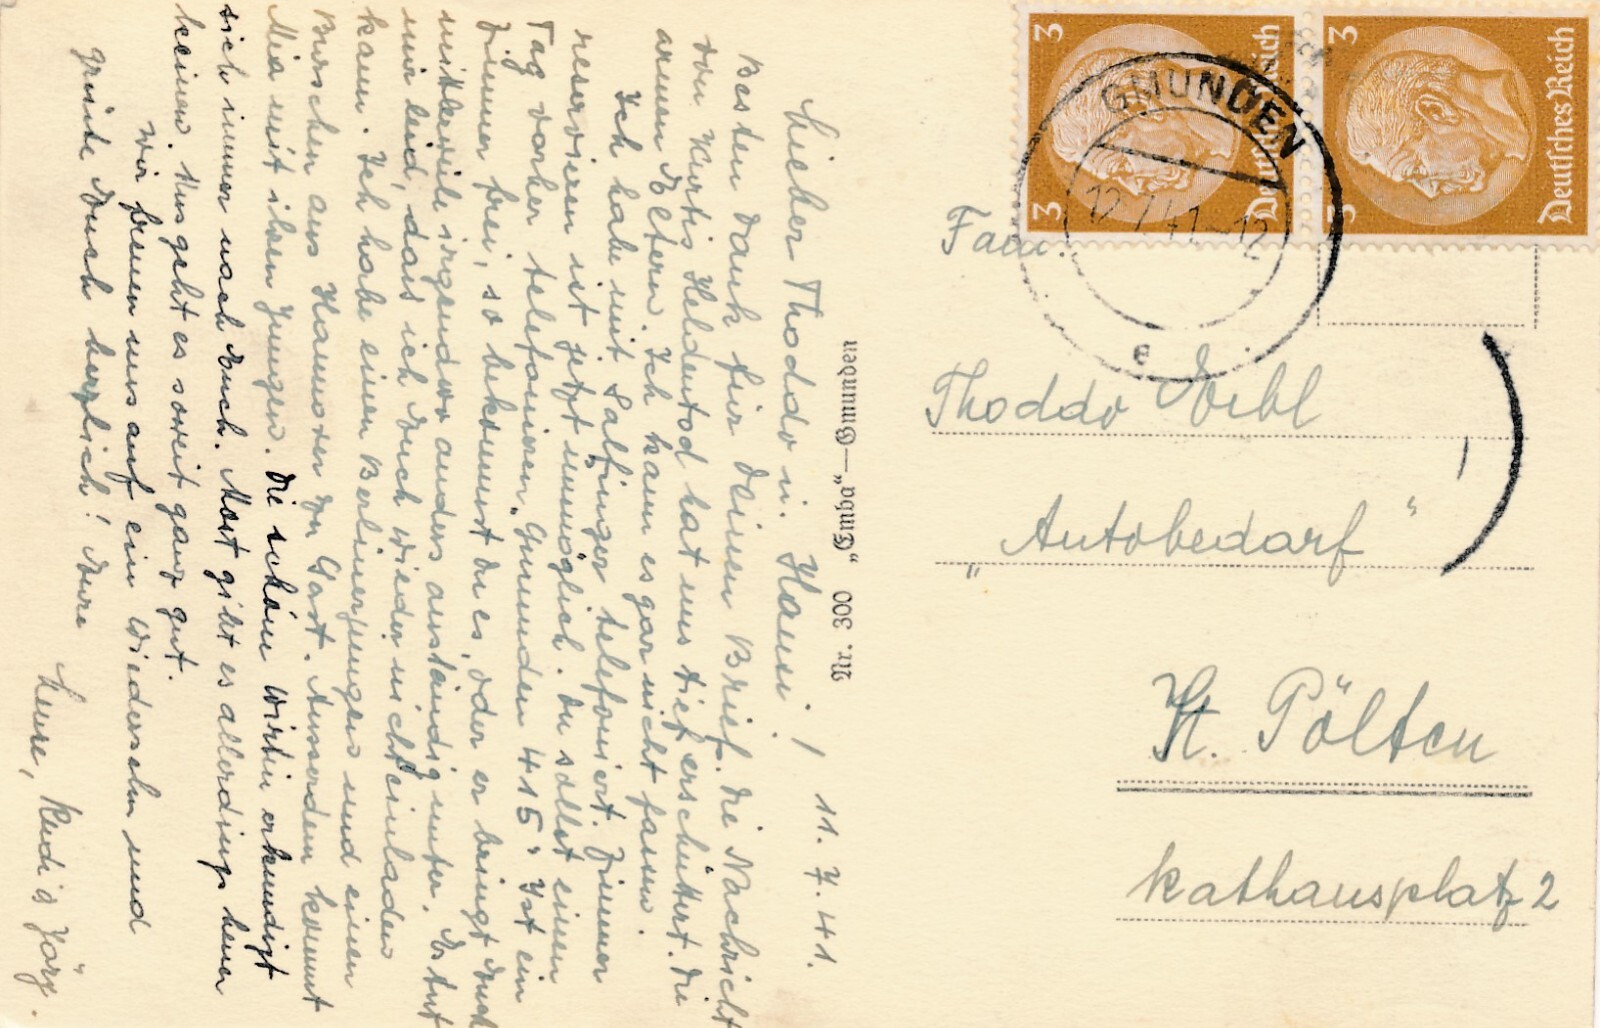 11. 7. 41.
Lieber Thoddo u. Hansi!
Besten Dank für Deinen Brief. Die Nachricht
von Kurtis Heldentod hat uns tief erschüttert. Die
armen Eltern. Ich kann es gar nicht fassen.
Ich habe mit Salfinger telefoniert. Zimmer
reservieren ist jetzt unmöglich. Du sollst einen
Tag vorher telefonieren „Gmunden 415". Ist ein
Zimmer frei, so bekommst Du es, oder er bringt Euch
mittlerweile irgendwo anders anständig unter. Es tut
mir leid, dass ich Euch wieder nicht einladen
kann. Ich habe einen Berlinerjungens und einen
Burschen aus Hannover zu Gast. Ausserdem kommt
Mia mit ihrem Jungen. Die schöne Wirtin erkundigt
sich immer nach Euch. Most gibt es allerdings heuer
keinen. Uns geht es soweit ganz gut.
Wir freuen uns auf ein Wiedersehn und
grüsse Euch herzlich! Eure
Rudi & Jörg.
Nr. 300 "Emba"—Gmunden
3
Deutsches Reich
3
3
Deutsches Reich
3
GMUNDEN
12.7.41-12
e
Fam.
Thoddo
„Autobedarf“
St. Pölten
Rathausplatz 2